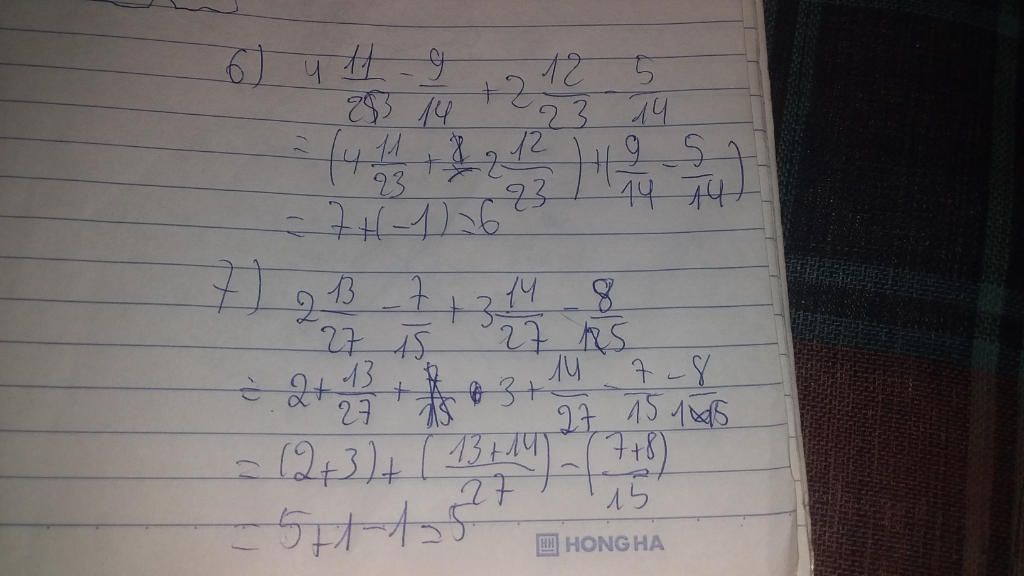 6) 4 11/23 - 9/14 + 2 12/23 - 5/14
= (4 11/23 + 2 12/23) + (9/14 - 5/14)
= 7 + (-1) = 6
7) 2 13/27 - 7/15 + 3 14/27 - 8/15
= 2 + 13/27 + 3 + 14/27 - 7/15 - 8/15
= (2+3) + (13+14/27) - (7+8/15)
= 5+1-1=5
HONG HA